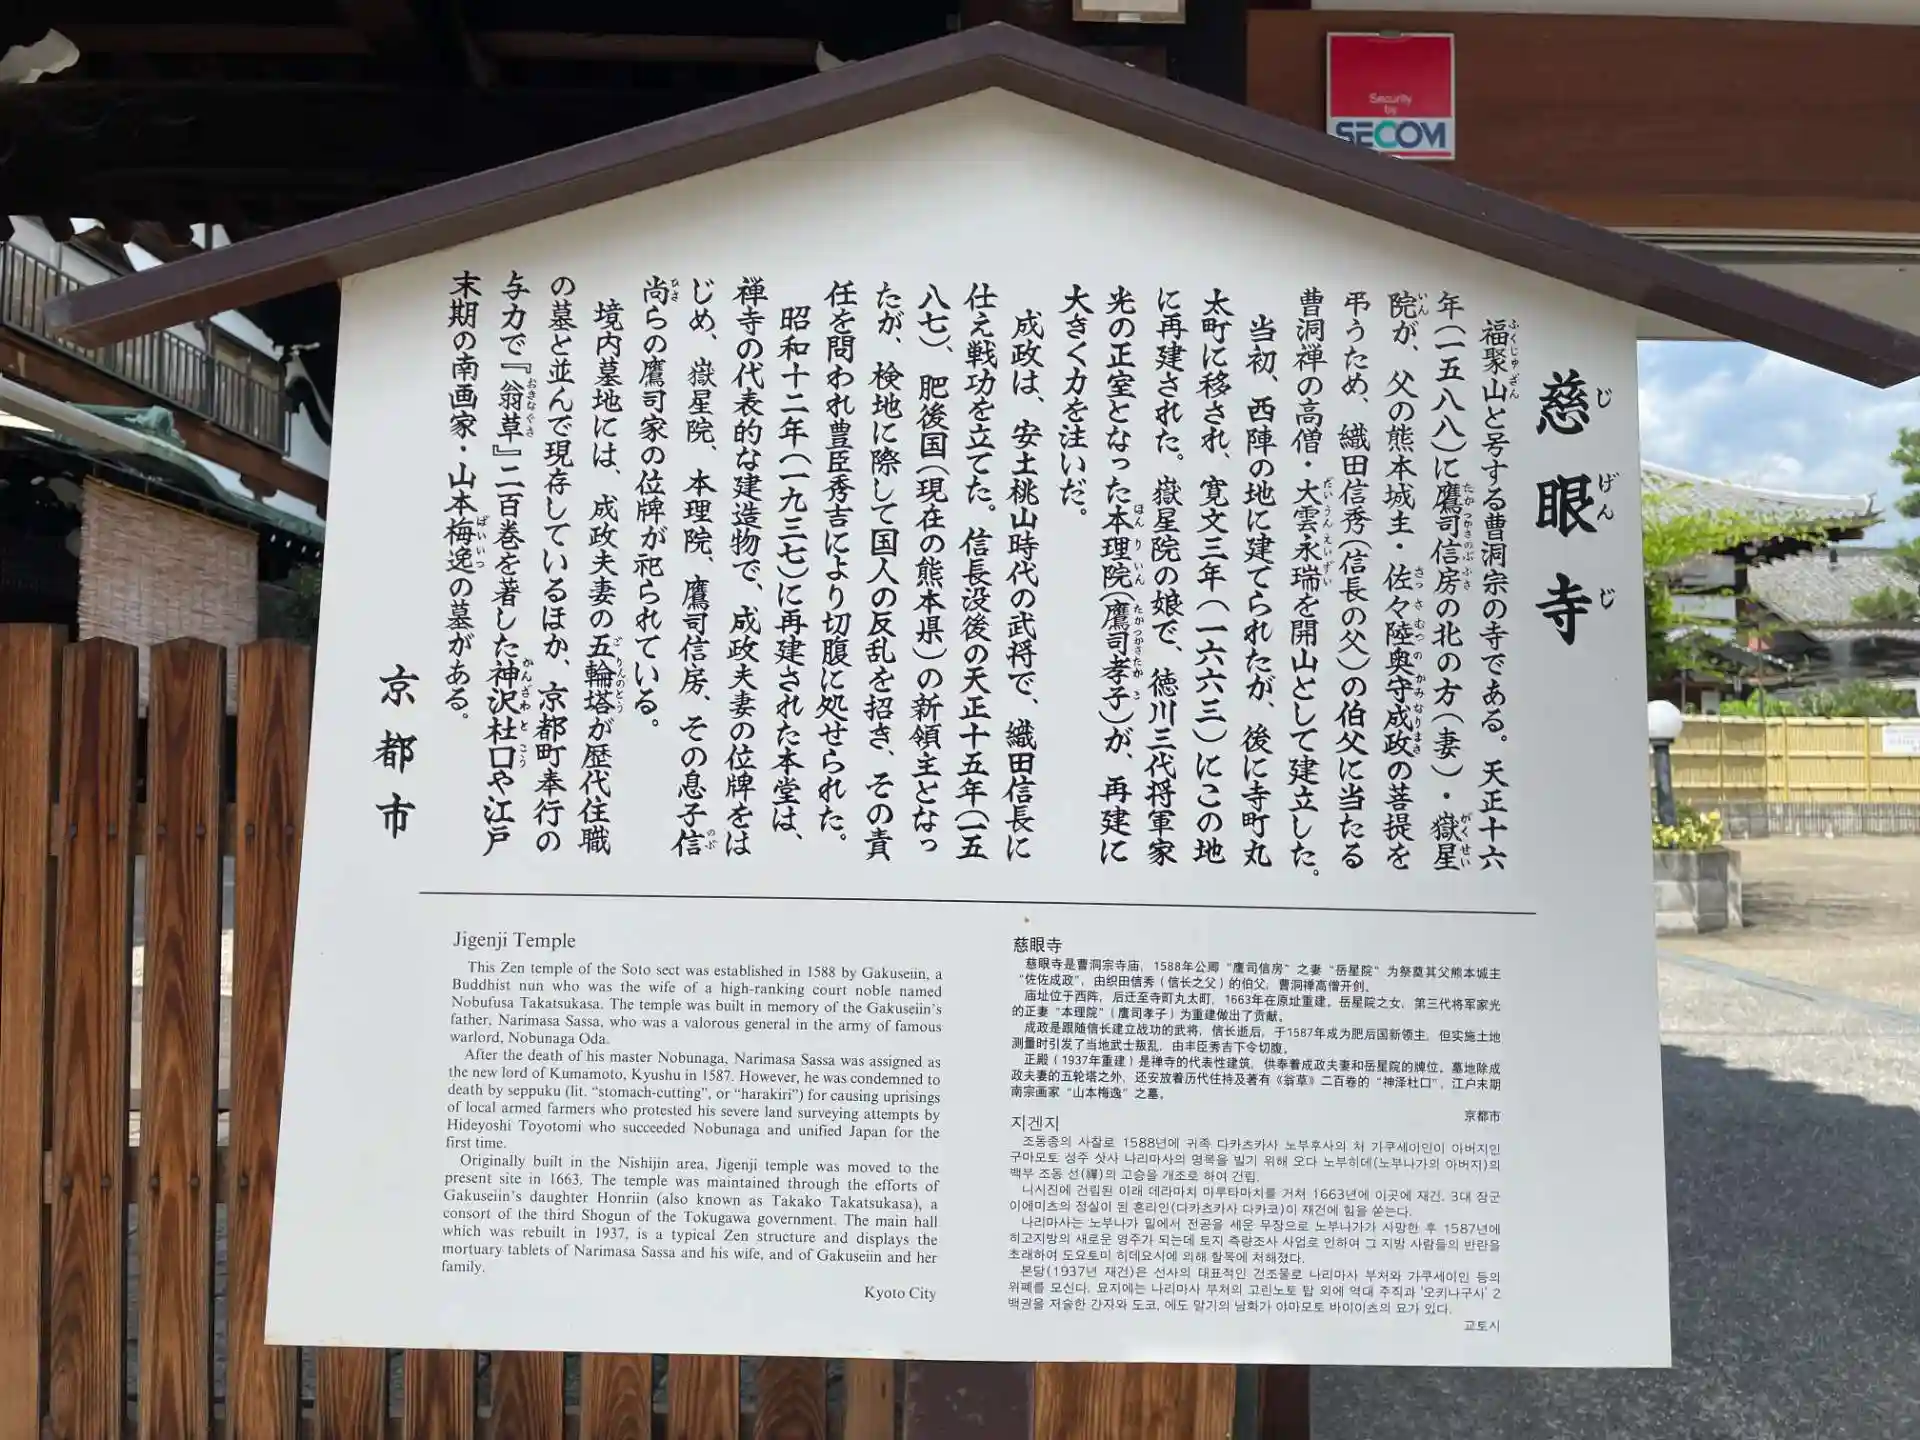 Security
by
SECOM
慈眼寺
じげんじ
福聚山と号する曹洞宗の寺である。天正十六
年(一五八八)に鷹司信房の北の方(妻)・嶽星
院が、父の熊本城主・佐々陸奥守成政の菩提を
弔うため、織田信秀(信長の父)の伯父に当たる
曹洞禅の高僧・大雲永瑞を開山として建立した。
当初、西陣の地に建てられたが、後に寺町丸
太町に移され、寛文三年(一六六三)にこの地
に再建された。嶽星院の娘で、徳川三代将軍家
光の正室となった本理院(鷹司孝子)が、再建に
大きく力を注いだ。
成政は、安土桃山時代の武将で、織田信長に
仕え戦功を立てた。信長没後の天正十五年(一五
八七)、肥後国(現在の熊本県)の新領主となっ
たが、検地に際して国人の反乱を招き、その責
任を問われ豊臣秀吉により切腹に処せられた。
昭和十二年(一九三七)に再建された本堂は、
禅寺の代表的な建造物で、成政夫妻の位牌をは
じめ、嶽星院、本理院、鷹司信房、その息子信
尚らの鷹司家の位牌が祀られている。
境内墓地には、成政夫妻の五輪塔が歴代住職
の墓と並んで現存しているほか、京都町奉行の
与力で『翁草』二百巻を著した神沢杜口や江戸
末期の南画家・山本梅逸の墓がある。
京都市
Jigenji Temple
This Zen temple of the Soto sect was established in 1588 by Gakuseiin, a
Buddhist nun who was the wife of a high-ranking court noble named
Nobufusa Takatsukasa. The temple was built in memory of the Gakuseiin's
father, Narimasa Sassa, who was a valorous general in the army of famous
warlord, Nobunaga Oda.
After the death of his master Nobunaga, Narimasa Sassa was assigned as
the new lord of Kumamoto, Kyushu in 1587. However, he was condemned to
death by seppuku (lit. “stomach-cutting”, or “harakiri”) for causing uprisings
of local armed farmers who protested his severe land surveying attempts by
Hideyoshi Toyotomi who succeeded Nobunaga and unified Japan for the
first time.
Originally built in the Nishijin area, Jigenji temple was moved to the
present site in 1663. The temple was maintained through the efforts of
Gakuseiin's daughter Honriin (also known as Takako Takatsukasa), a
consort of the third Shogun of the Tokugawa government. The main hall
which was rebuilt in 1937, is a typical Zen structure and displays the
mortuary tablets of Narimasa Sassa and his wife, and of Gakuseiin and her
family.
Kyoto City
慈眼寺
慈眼寺是曹洞宗寺庙，1588年公卿“鹰司信房”之妻“岳星院”为祭奠其父熊本城主
“佐佐成政”，由织田信秀（信长之父）的伯父，曹洞禅高僧开创。
庙址位于西阵，后迁至寺町丸太町，1663年在原址重建。岳星院之女，第三代将军家光
的正妻“本理院”（鹰司孝子）为重建做出了贡献。
成政是跟随信长建立战功的武将，信长逝后，于1587年成为肥后国新领主，但实施土地
测量时引发了当地武士叛乱，由丰臣秀吉下令切腹。
正殿（1937年重建）是禅寺的代表性建筑，供奉着成政夫妻和岳星院的牌位。墓地除成
政夫妻的五轮塔之外，还安放着历代住持及著有《翁草》二百卷的“神泽杜口”，江户末期
南宗画家“山本梅逸”之墓。
京都市
지겐지
조동종의 사찰로 1588년에 귀족 다카츠카사 노부후사의 처 가쿠세이인이 아버지인
구마모토 성주 삿사 나리마사의 명복을 빌기 위해 오다 노부히데(노부나가의 아버지)의
백부 조동 선(禪)의 고승을 개조로 하여 건립.
니시진에 건립된 이래 데라마치 마루타마치를 거쳐 1663년에 이곳에 재건. 3대 장군
이에미츠의 정실이 된 혼리인(다카츠카사 다카코)이 재건에 힘을 쏟는다.
나리마사는 노부나가 밑에서 전공을 세운 무장으로 노부나가가 사망한 후 1587년에
히고지방의 새로운 영주가 되는데 토지 측량조사 사업로 인하여 그 지방 사람들의 반란을
초래하여 도요토미 히데요시에 의해 할복에 처해졌다.
본당(1937년 재건)은 선사의 대표적인 건조물로 나리마사 부처와 가쿠세이인 등의
위패를 모신다. 묘지에는 나리마사 부처의 고린노토 탑 외에 역대 주직과 '오키나구사' 2
백권을 저술한 간자와 도코, 에도 말기의 남화가 야마모토 바이이츠의 묘가 있다.
교토시